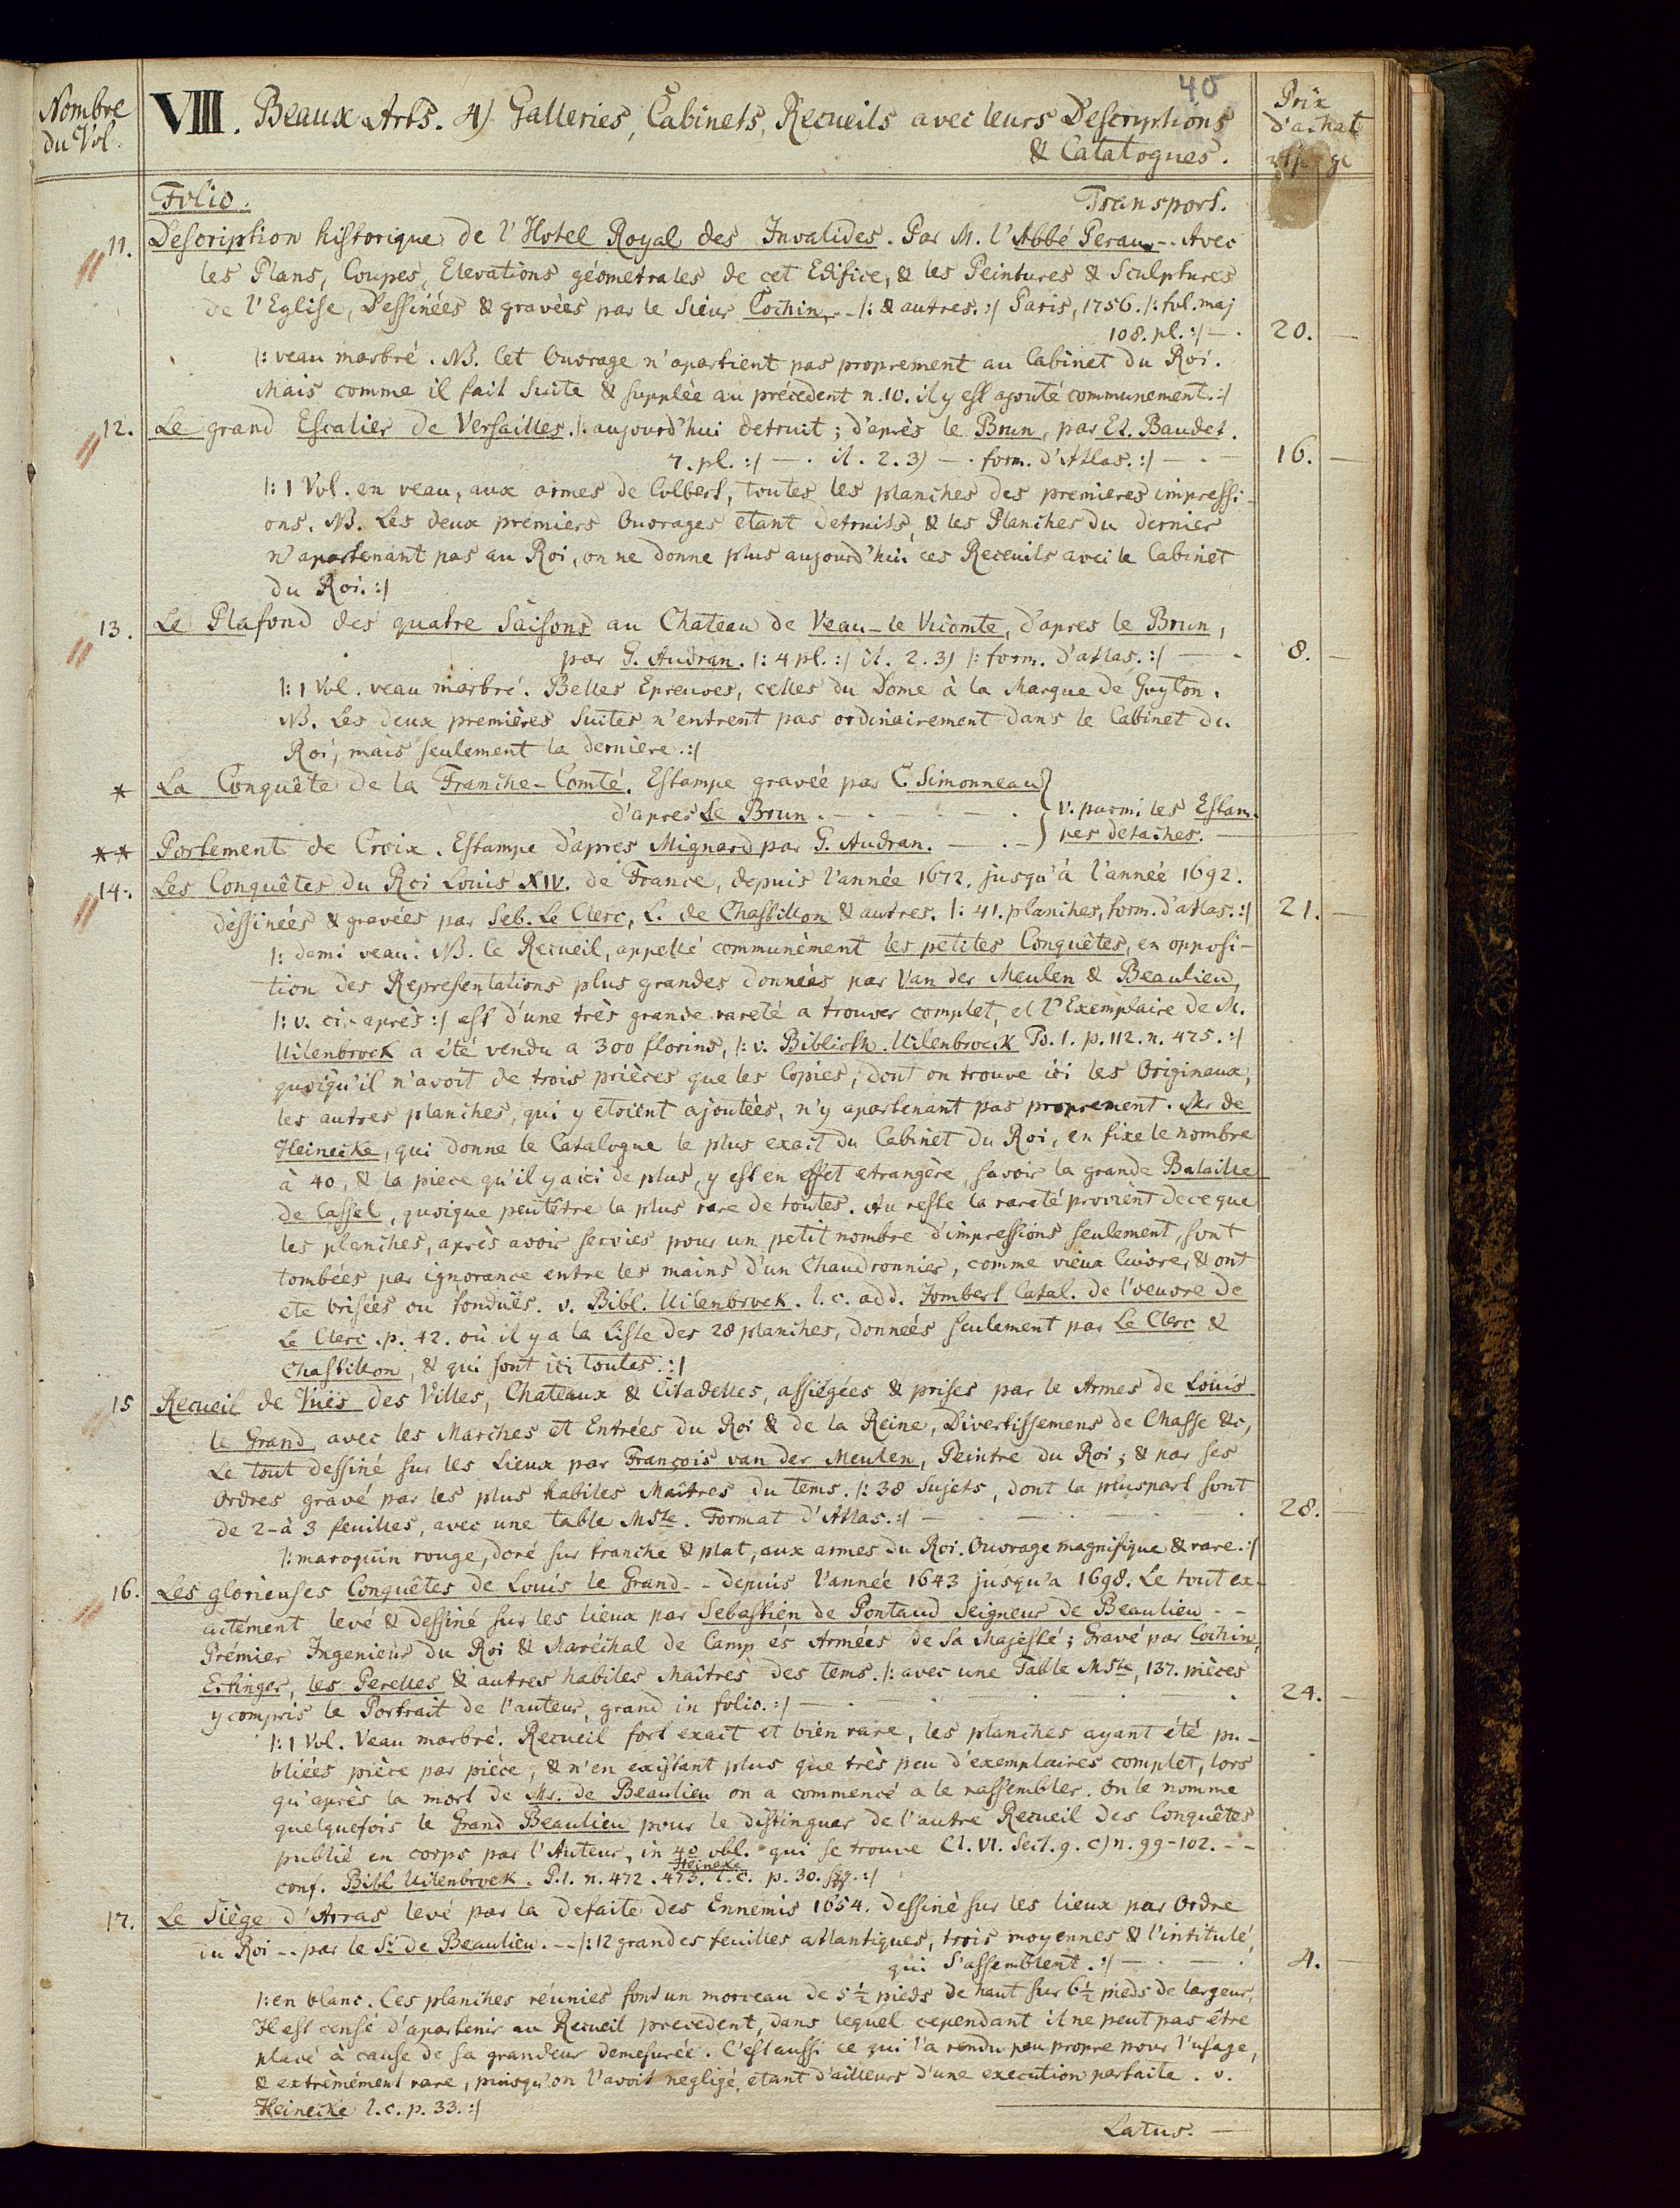 40
Nombre du Vol.
VIII. Beaux Arts. 4) Galleries, Cabinets, Recueils avec leurs Descriptions
& Catalogues.
Prix d'achat
Folio. Transport.
11. Description historique de l'Hotel Royal des Invalides. Par M. l'Abbé Perau -. Avec
les Plans, Coupes, Elevations géometrales de cet Edifice, & les Peintures & Sculptures
de l'Eglise, Dessinées & gravées par le Sieur Cochin, - /: & autres. :/ Paris, 1756. /: fol. maj
108. pl. :/ — . 20. —
/: veau marbré. NB. Cet Ouvrage n'apartient pas proprement au Cabinet du Roi.
Mais comme il fait Suite & supplée au précedent n. 10. il y est ajouté communement. :/
12. Le grand Escalier de Versailles. /: aujourd'hui detruit; d'après le Brun, par Et. Baudet.
7. pl. :/ — . it. 2. 3) — . form. d'Atlas. :/ — . — 16. —
/: 1 Vol. en veau, aux armes de Colbert, toutes les planches des premieres impressi-
ons. NB. Les deux premiers Ouvrages etant detruits, & les Planches du dernier
n'apartenant pas au Roi, on ne donne plus aujourd'hui ces Receuils avec le Cabinet
du Roi. :/
13. Le Plafond des quatre Saisons au Chateau de Veau-le Vicomte, d'apres le Brun,
par G. Audran. /: 4 pl. :/ it. 2. 3) /: form. d'atlas. :/ — - 8. —
/: 1 Vol. veau marbré. Belles Epreuves, celles du Dome à la Marque de Guyton.
NB. Les deux premières Suites n'entrent pas ordinairement dans le Cabinet du
Roi, mais seulement la derniere. :/
* La Conquête de la Franche-Comté. Estampe gravée par C. Simonneau
d'apres Le Brun. - — . — . — . } v. parmi les Estam-
** Portement de Croix. Estampe d'apres Mignard par G. Audran. — . - } pes detachés. —
14. Les Conquêtes du Roi Louis XIV. de France, depuis l'année 1672. jusqu'à l'année 1692.
dessinées & gravées par Seb. Le Clerc, L. de Chastillon & autres. /: 41. planches, form. d'atlas. :/ 21. —
/: demi veau. NB. le Recueil, appellé communèment les petites Conquêtes, en opposi-
tion des Representations plus grandes données par Van der Meulen & Beaulieu,
/: v. ci-après :/ est d'une très grande rareté a trouver complet, et l'Exemplaire de M.
Uilenbroek a été vendu a 300 florins, /: v. Biblioth. Uilenbroeck Ps. 1. p. 112. n. 475. :/
quoiqu'il n'avoit de trois prièces que les Copies, dont on trouve ici les Originaux,
les autres planches, qui y etoient ajoutées, n'y apartenant pas proprement. Mr de
Heinecke, qui donne le Catalogue le plus exact du Cabinet du Roi, en fixe le nombre
à 40, & la piece qu'il y a ici de plus, y est en effet etrangère, savoir la grande Bataille
de Cassel, quoique peutêtre la plus rare de toutes. Au reste la rareté provient de ce que
les planches, après avoir servies pour un petit nombre d'impressions seulement, sont
tombées par ignorance entre les mains d'un Chaudronnier, comme vieux Cuivre, & ont
ete brisées ou fonduës. v. Bibl. Uilenbroek. l. c. add. Jombert Catal. de l'oeuvre de
Le Clerc. p. 42. où il y a la Liste des 28 planches, données seulement par Le Clerc &
Chastillon, & qui sont ici toutes. :/
15 Recueil de Vuës des Villes, Chateaux & Citadelles, assiégées & prises par le Armes de Louis
le Grand avec les Marches et Entrées du Roi & de la Reine, Divertissemens de Chasse &c,
Le tout dessiné sur les Lieux par François van der Meulen, Peintre du Roi; & par ses
Ordres gravé par les plus habiles Maîtres du tems. /: 38 Sujets, dont la pluspart sont
de 2-à 3 feuilles, avec une table Mste. Format d'Atlas. :/ — . — . — . — . 28. —
/: maroquin rouge, doré sur tranche & plat, aux armes du Roi. Ouvrage magnifique & rare. :/
16. Les glorieuses Conquêtes de Louis le Grand - - depuis l'année 1643 jusqu'a 1698. Le tout ex-
actément levé & dessiné sur les lieux par Sebastien de Pontaud Seigneur de Beaulieu - -
Prémier Ingenieur du Roi & Maréchal de Camp és Armées de Sa Majesté; Gravé par Cochin,
Ertinger, les Perelles & autres habiles Maîtres des tems. /: avec une Table Mste, 137. pièces
y compris le Portrait de l'auteur, grand in folio. :/ — . — . — . — . 24. —
/: 1 Vol. Veau marbré. Recueil fort exact et bien rare, les planches ayant été pu-
bliées pièce par pièce, & n'en existant plus que très peu d'exemplaires complet, lors
qu'après la mort de Mr. de Beaulieu on a commencé a le rassembler. On le nomme
quelquefois le Grand Beaulieu pour le distinguer de l'autre Recueil des Conquêtes
publié en corps par l'Auteur, in 4o obl. qui se trouve Cl. VI. Sect. 9. c) n. 99-102. - -
conf. Bibl Uilenbroek. P. 1. n. 472. 473. Heineke l. c. p. 30. sqq. :/
17. Le Siège d'Arras levé par la defaite des Ennemis 1654. dessiné sur les lieux par Ordre
du Roi - - par le Sr. de Beaulieu. - - /: 12 grandes feuilles atlantiques, trois moyennes & l'intitulé,
qui S'assemblent. :/ — . — . 4. —
/: en blanc. Ces planches réunies font un morceau de 5 1/2 pieds de haut sur 6 1/2 pieds de largeur,
Il est censé d'apartenir au Recueil precedent, dans lequel cependant il ne peut pas être
placé à cause de sa grandeur demesurée. C'est aussi ce qui l'a rendu peu propre pour l'usage,
& extrêmément rare, puisqu'on l'avoit negligé, étant d'ailleurs d'une execution parfaite. v.
Heinecke l. c. p. 33. :/
Latus. —